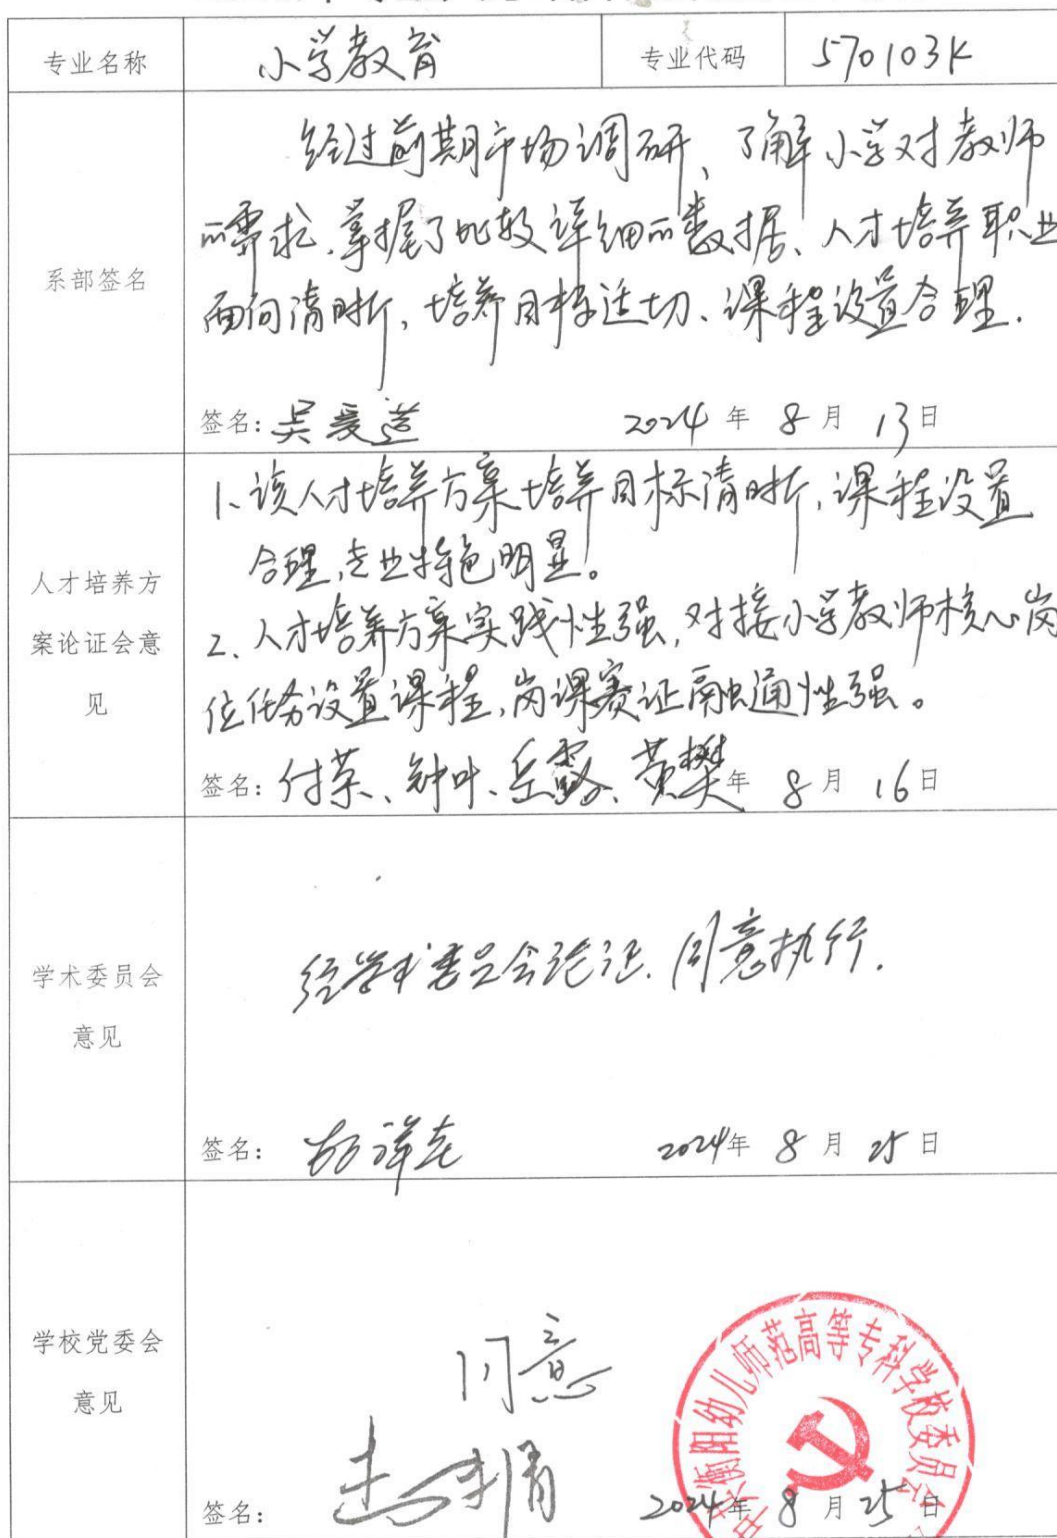 专业名称 小学教育 专业代码 570103K
系部签名
经过前期市场调研、了解小学对教师
的需求、掌握了比较详细的数据、人才培养职业
面向清晰,培养目标适切、课程设置合理.
签名: 2024 年 8 月 13 日
人才培养方
案论证会意
见
1、该人才培养方案培养目标清晰,课程设置
合理,专业特色明显。
2、人才培养方案实践性强,对接小学教师核心岗
位任务设置课程,岗课赛证融通性强。
签名: 年 8 月 16 日
学术委员会
意见
经学术委员会论证.同意执行.
签名: 2024年 8 月 25 日
学校党委会
意见
同意
中共衡阳幼儿师范高等专科学校委员会
签名: 2024年 8 月 25 日